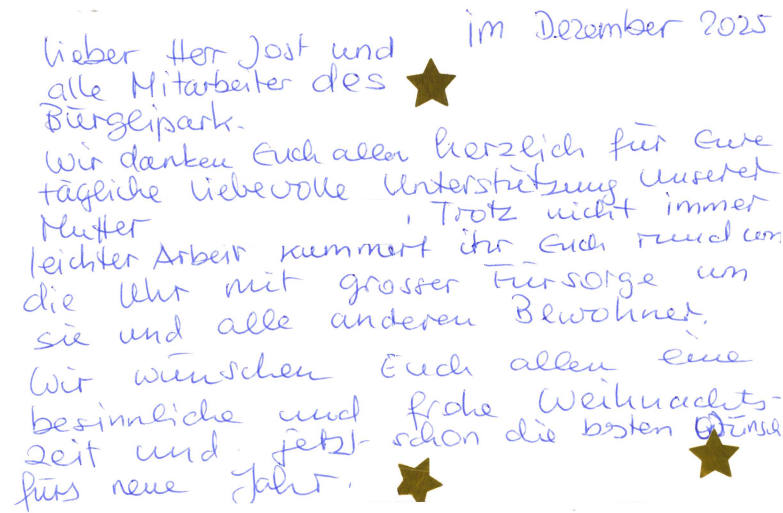 im Dezember 2025
Lieber Herr Jost und
alle Mitarbeiter des
Bürgerpark.
Wir danken Euch allen herzlich für Eure
tägliche liebevolle Unterstützung unserer
Mutter . Trotz nicht immer
leichter Arbeit kümmert ihr Euch rund um
die Uhr mit grosser Fürsorge um
sie und alle anderen Bewohner.
Wir wünschen Euch allen eine
besinnliche und frohe Weihnachts-
zeit und jetzt schon die besten Wünsche
fürs neue Jahr.